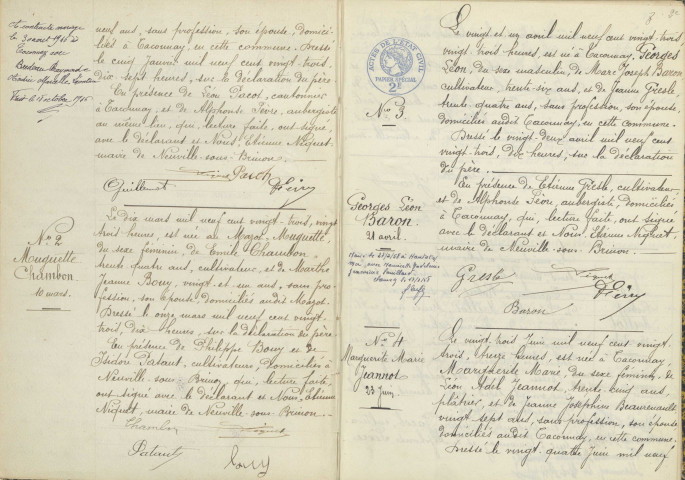 neuf ans, sans profession, son épouse, domici-
liés à Taconnay, en cette commune. Dressé
le cinq janvier mil neuf cent vingt trois.
dix sept heures, sur la déclaration du père
En présence de Léon Pacot, cantonnier
à Taconnay, et de Alphonse Féry, aubergiste
au même lieu, qui, lecture faite, ont signé
avec le déclarant et Nous, Etienne Niquet
maire de Neuville-sous-Brinon.
Guillemet
Féry
No 2
Mouquette
Chambon
10 mars.
Le dix mars mil neuf cent vingt-trois, vingt
trois heures, est née au Mazot, Mouquette,
du sexe féminin, de Emile Chambon,
trente quatre ans, cultivateur, et de Marthe
Jeanne Bouy, vingt et un ans, sans pro-
fession, son épouse, domiciliés audit Mazot.
Dressé le onze mars mil neuf cent vingt
trois, dix heures, sur la déclaration du père
En présence de Philippe Bouy et de
Isidore Pataut, cultivateurs, domiciliés à
Neuville-sous-Brinon, qui, lecture faite,
ont signé avec le déclarant et Nous, Etienne
Niquet, maire de Neuville-sous-Brinon.
Chambon
Pataut
Bouy
ACTES DE L'ETAT CIVIL
PAPIER SPECIAL
2F
No 3
Georges Léon
Baron.
21 avril.
Le vingt et un avril mil neuf cent vingt-trois
vingt-trois heures, est né à Taconnay, Georges
Léon, du sexe masculin, de Marc Joseph Baron
cultivateur, trente-six ans, et de Jeanne Gresle,
trente quatre ans, sans profession, son épouse,
domiciliés audit Taconnay, en cette commune.
Dressé le vingt-deux avril mil neuf cent
vingt-trois, dix heures, sur la déclaration
du père.
En présence de Etienne Gresle, cultivateur,
et de Alphonse Féry, aubergiste, domiciliés
à Taconnay, qui, lecture faite, ont signé
avec le déclarant et Nous, Etienne Niquet
maire de Neuville-sous-Brinon.
Gresle
Féry
Baron
No 4
Marguerite Marie
Jeannot
23 Juin
Le vingt-trois Juin mil neuf cent vingt
trois, heures, est née à Taconnay,
Marguerite Marie du sexe féminin, de
Léon Jeannot, trente cinq ans,
plâtrier, et de Jeanne Joséphine
vingt sept ans, sans profession, son épouse
domiciliés audit Taconnay, en cette commune.
Dressé le vingt-quatre Juin mil neuf